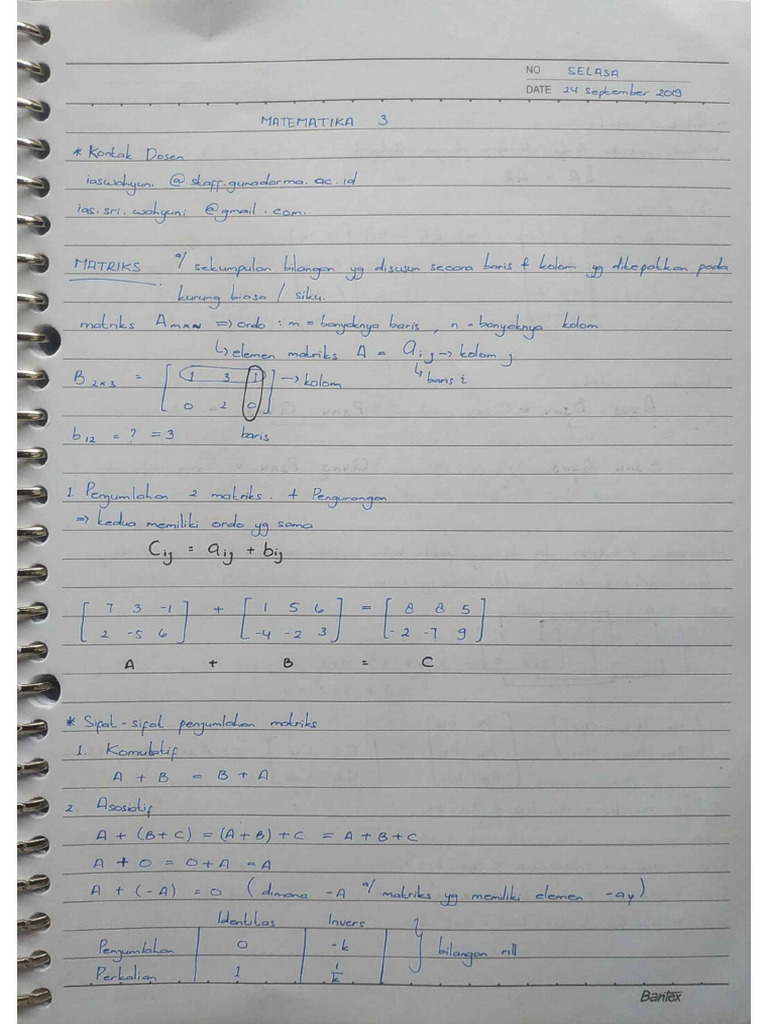 NO SELASA
DATE 24 September 2019
MATEMATIKA 3
* Kontak Dosen
iaswahyuni @staff.gunadarma.ac.id
ias.sri.wahyuni @gmail.com.
MATRIKS % sekumpulan bilangan yg disusun secara baris & kolom yg diletakkan pada
kurung biasa / siku.
matriks A m×n => ordo : m = banyaknya baris, n = banyaknya kolom
↳ elemen matriks A = a ij → kolom j
↳ baris i
B 2×3 = [ 1 3 1 → kolom
0 2 0 ]
b12 = ? = 3 baris
1. Penjumlahan 2 matriks. + Pengurangan
=> kedua memiliki ordo yg sama
Cij = aij + bij
[ 7 3 -1 ] + [ 1 5 6 ] = [ 8 8 5 ]
[ 2 -5 6 ] [ -4 -2 3 ] [ -2 -7 9 ]
A + B = C
* Sifat-sifat penjumlahan matriks
1. Komutatif
A + B = B + A
2. Asosiatif
A + (B+C) = (A+B)+C = A+B+C
A + 0 = 0+A = A
A + (-A) = 0 (dimana -A % matriks yg memiliki elemen -aij)
Identitas Invers
Penjumlahan 0 -k } bilangan riil
Perkalian 1 1/k
Bantex